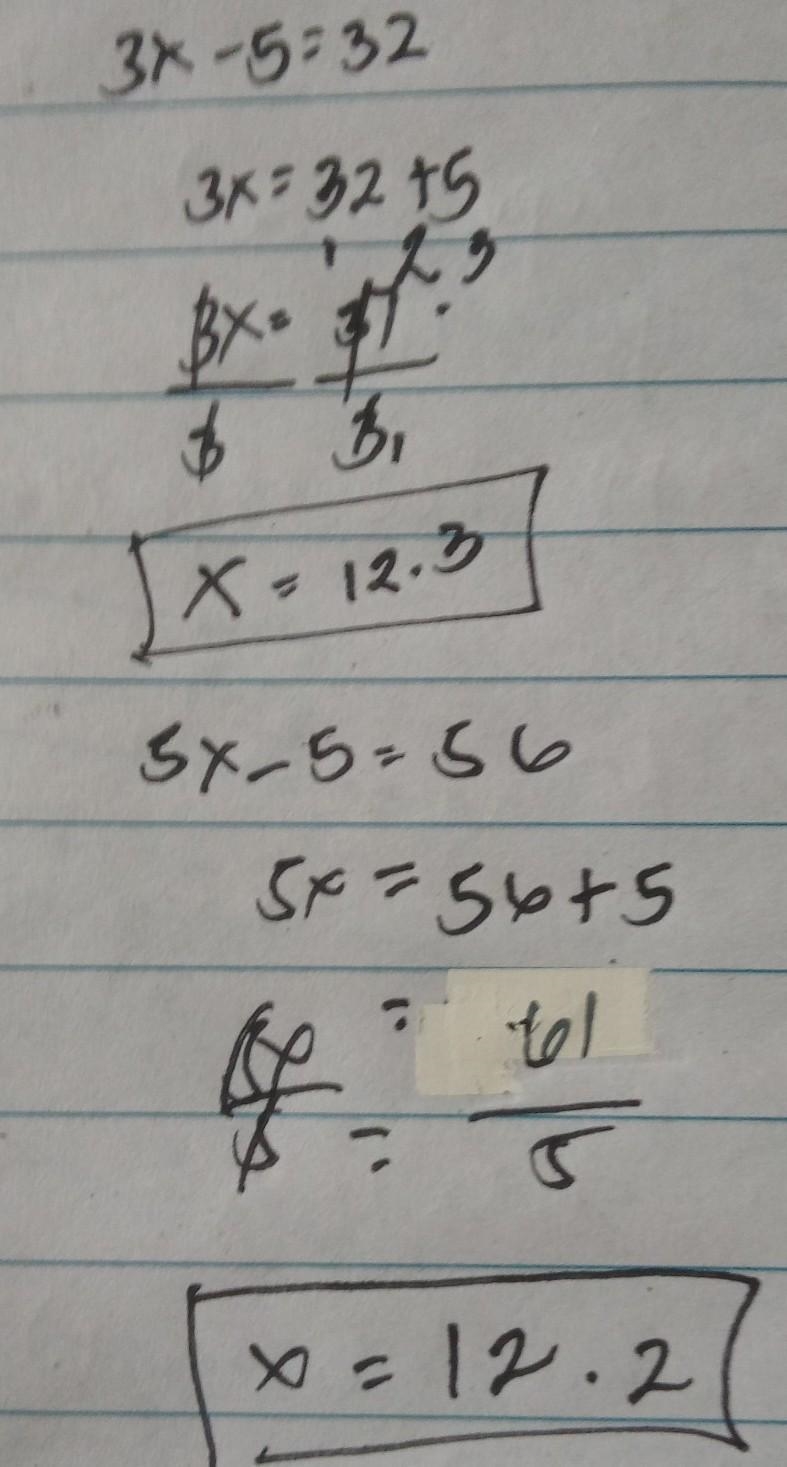 3x - 5 = 32
3x = 32 + 5
1 2 3
3x = 37 .
3 3 1
x = 12.3
5x - 5 = 56
5x = 56 + 5
5x = 61
5 = 5
x = 12.2